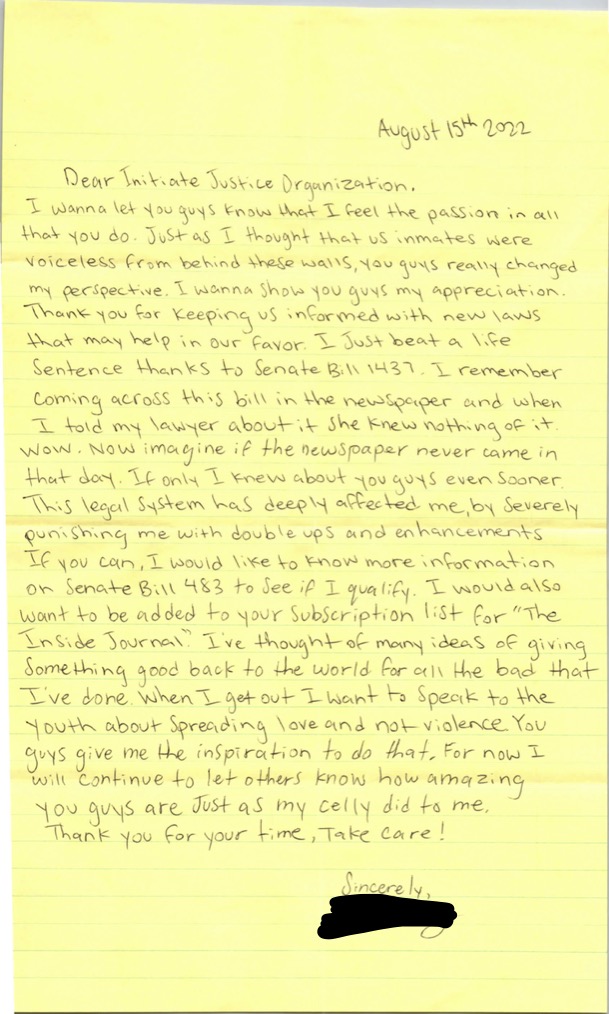 August 15th 2022
Dear Initiate Justice Organization.
I wanna let you guys know that I feel the passion in all
that you do. Just as I thought that us inmates were
voiceless from behind these walls, you guys really changed
my perspective. I wanna show you guys my appreciation.
Thank you for keeping us informed with new laws
that may help in our favor. I Just beat a life
Sentence thanks to Senate Bill 1437. I remember
coming across this bill in the newspaper and when
I told my lawyer about it she knew nothing of it.
Wow. Now imagine if the newspaper never came in
that day. If only I knew about you guys even sooner.
This legal system has deeply affected me, by severely
punishing me with double ups and enhancements
If you can, I would like to know more information
on Senate Bill 483 to see if I qualify. I would also
want to be added to your subscription list for "The
Inside Journal". I've thought of many ideas of giving
something good back to the world for all the bad that
I've done. When I get out I want to speak to the
youth about spreading love and not violence. You
guys give me the inspiration to do that. For now I
will continue to let others know how amazing
you guys are Just as my celly did to me.
Thank you for your time, Take care!
Sincerely,